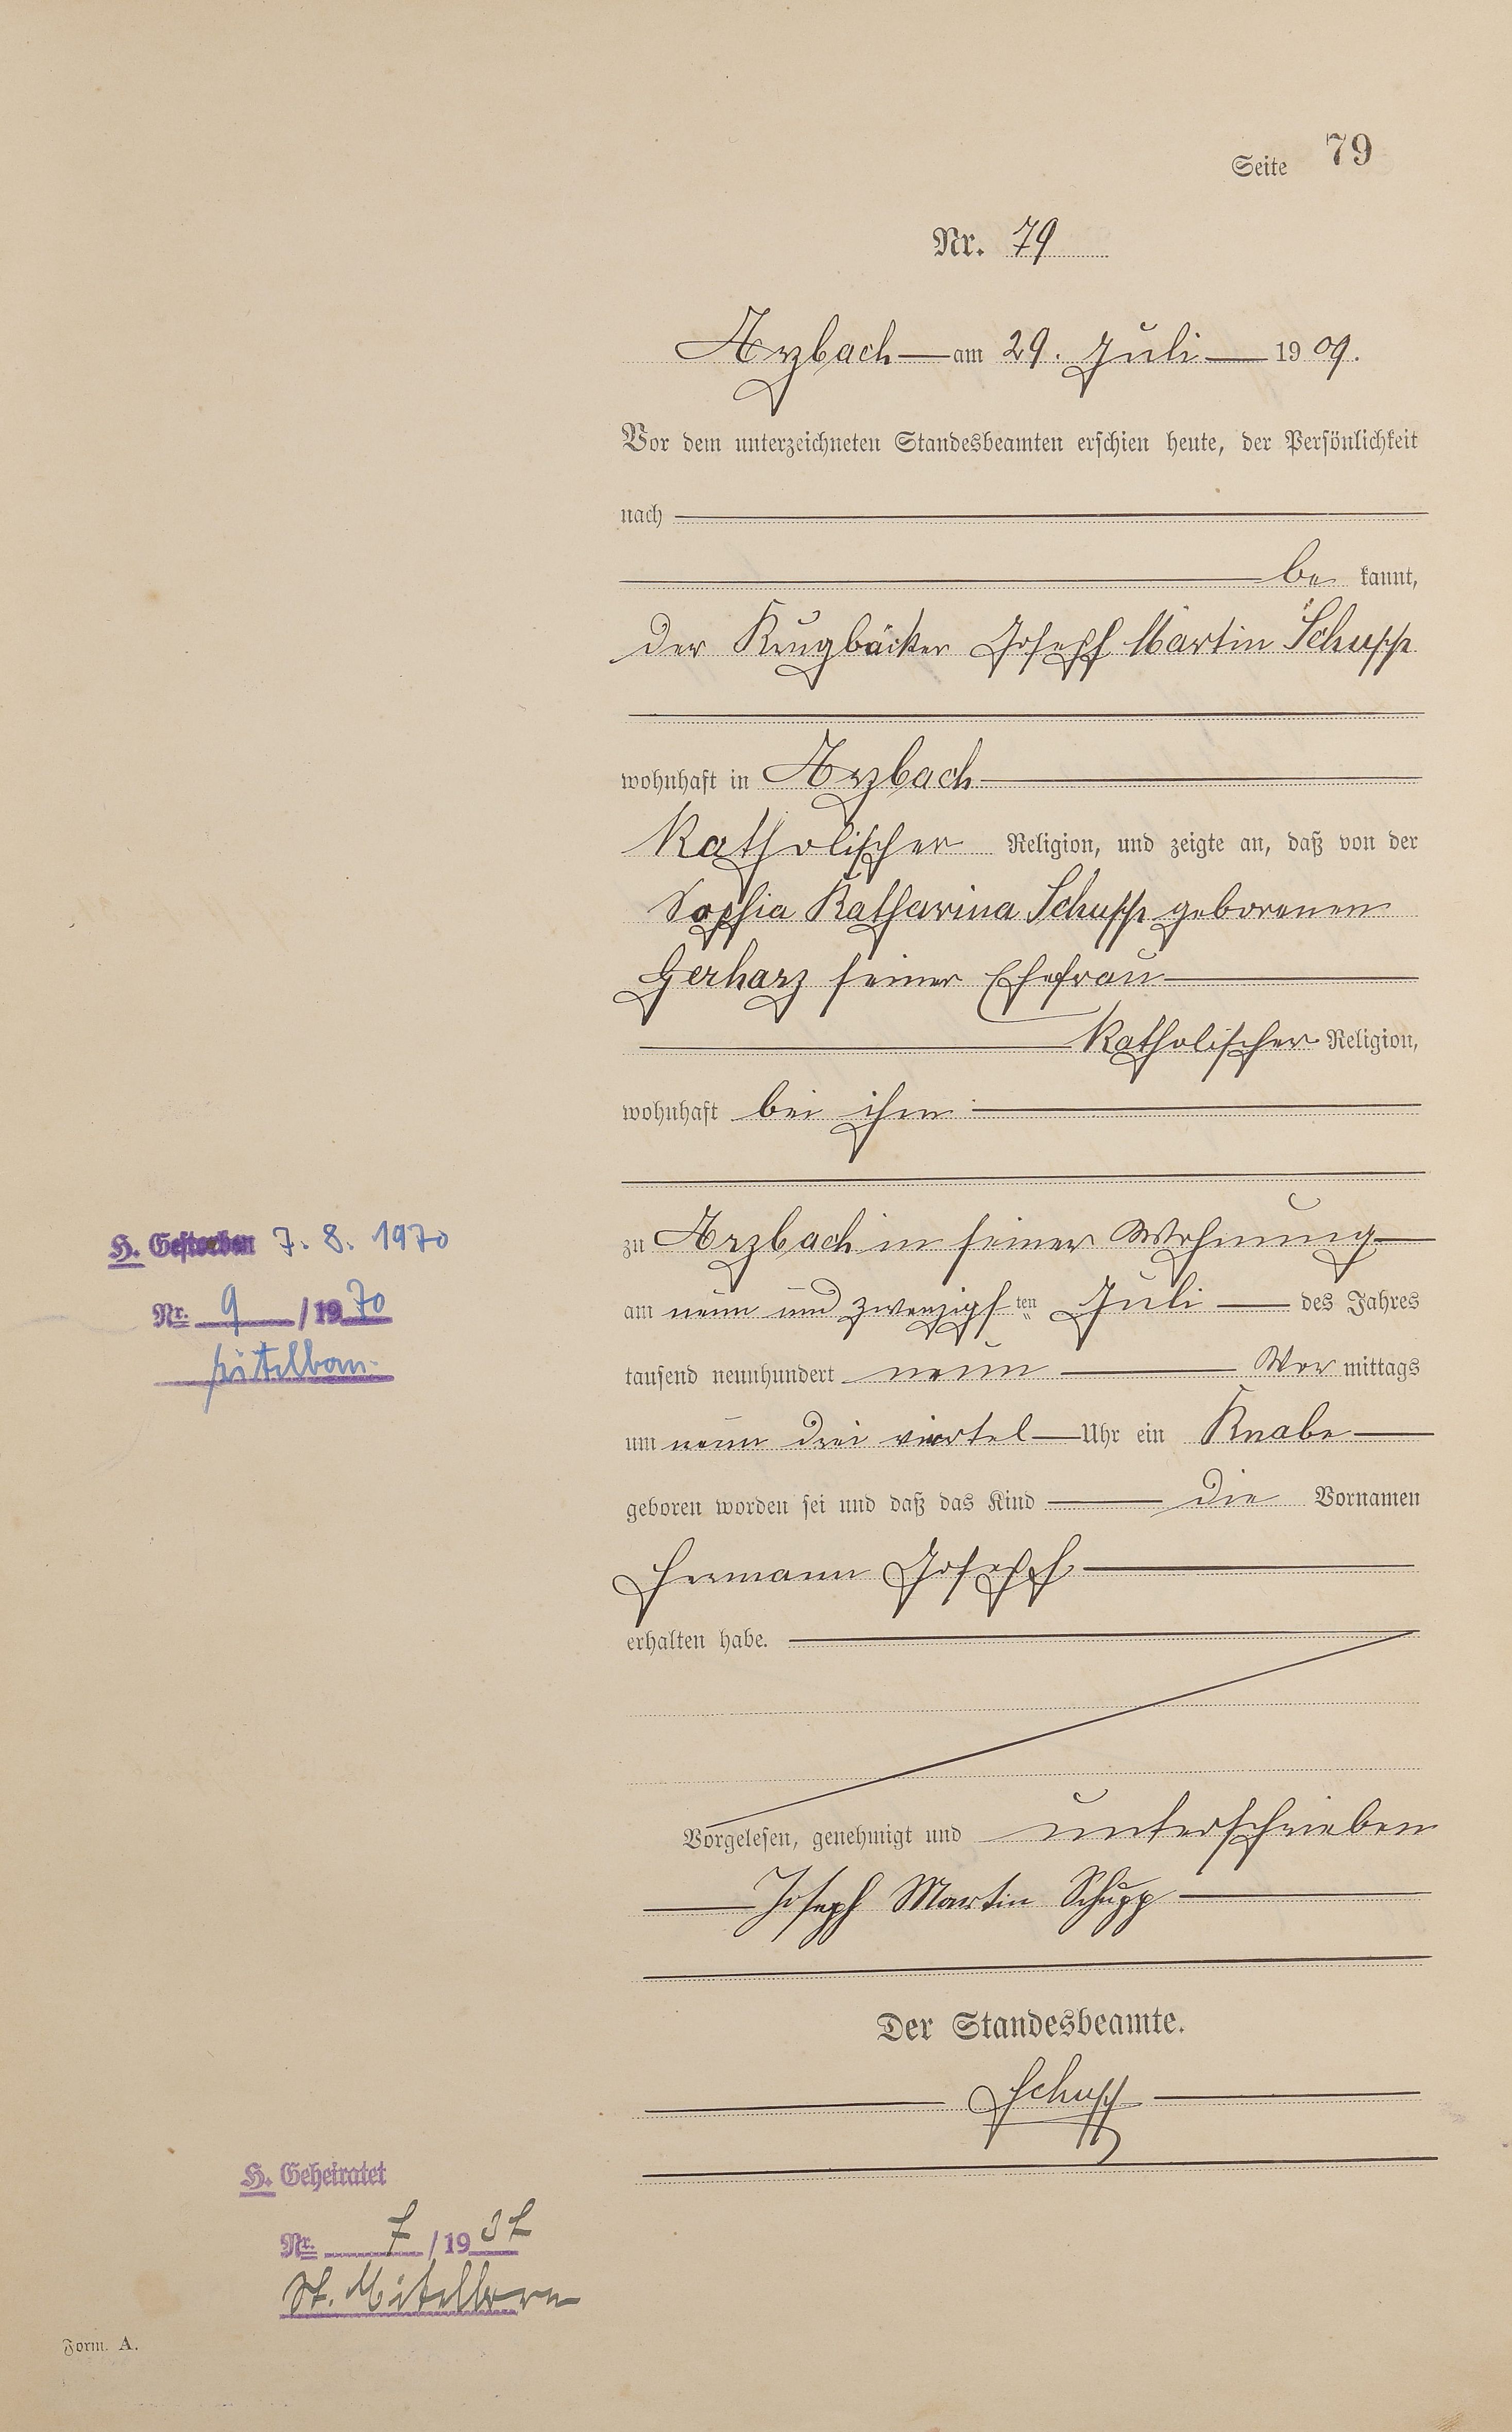 Seite 79
Nr. 79
Arzbach am 29. Juli 1909.
Vor dem unterzeichneten Standesbeamten erschien heute, der Persönlichkeit
nach
be kannt,
der Krugbäcker Joseph Martin Schupp
wohnhaft in Arzbach
katholischer Religion, und zeigte an, daß von der
Sophia Katharina Schupp geborenen
Gerharz seiner Ehefrau
katholischer Religion,
wohnhaft bei ihm
zu Arzbach in seiner Wohnung
am neun und zwanzigsten Juli des Jahres
tausend neunhundert neun Vor mittags
um neun drei viertel Uhr ein Knabe
geboren worden sei und daß das Kind die Vornamen
Hermann Joseph
erhalten habe.
Vorgelesen, genehmigt und unterschrieben
Joseph Martin Schupp
Der Standesbeamte.
Schupp
H. Gestorben 7. 8. 1970
Nr. 9 / 1970
H. Geheiratet
Nr. 7 / 19
Form. A.